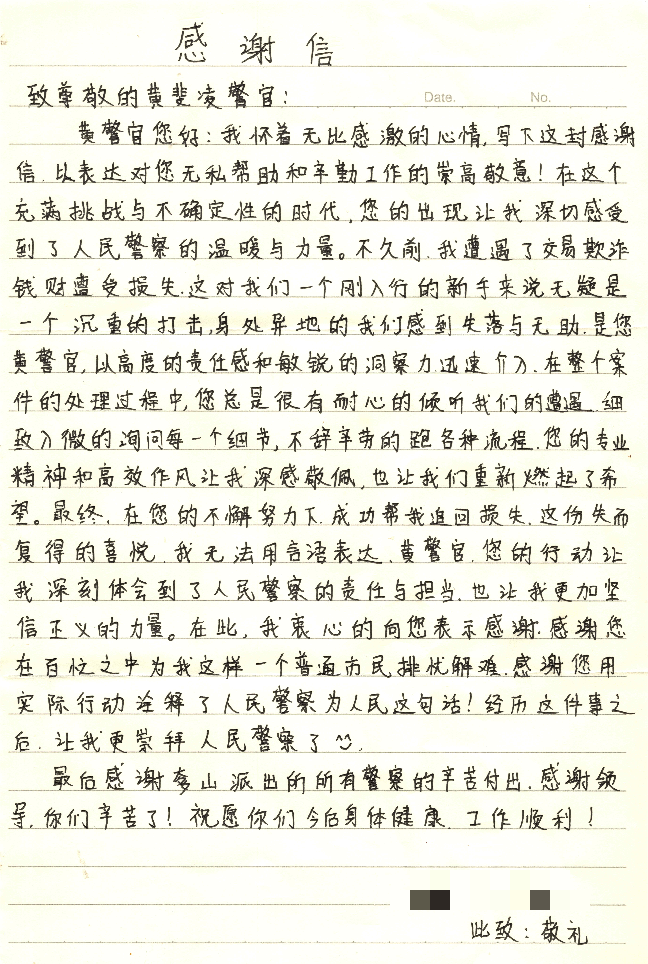 感谢信
致尊敬的黄斐凌警官:
Date. No.
黄警官您好:我怀着无比感激的心情,写下这封感谢
信.以表达对您无私帮助和辛勤工作的崇高敬意!在这个
充满挑战与不确定性的时代,您的出现让我深切感受
到了人民警察的温暖与力量。不久前.我遭遇了交易欺诈
钱财遭受损失.这对我们一个刚入行的新手来说无疑是
一个沉重的打击,身处异地的我们感到失落与无助.是您
黄警官,以高度的责任感和敏锐的洞察力迅速介入.在整个案
件的处理过程中,您总是很有耐心的倾听我们的遭遇.细
致入微的询问每一个细节,不辞辛劳的跑各种流程.您的专业
精神和高效作风让我深感敬佩,也让我们重新燃起了希
望。最终.在您的不懈努力下.成功帮我追回损失.这份失而
复得的喜悦.我无法用言语表达.黄警官.您的行动让
我深刻体会到了人民警察的责任与担当.也让我更加坚
信正义的力量。在此,我衷心的向您表示感谢.感谢您
在百忙之中为我这样一个普通市民排忧解难.感谢您用
实际行动诠释了人民警察为人民这句话!经历这件事之
后.让我更崇拜人民警察了
最后感谢奓山派出所所有警察的辛苦付出.感谢领
导.你们辛苦了!祝愿你们今后身体健康.工作顺利!
此致:敬礼